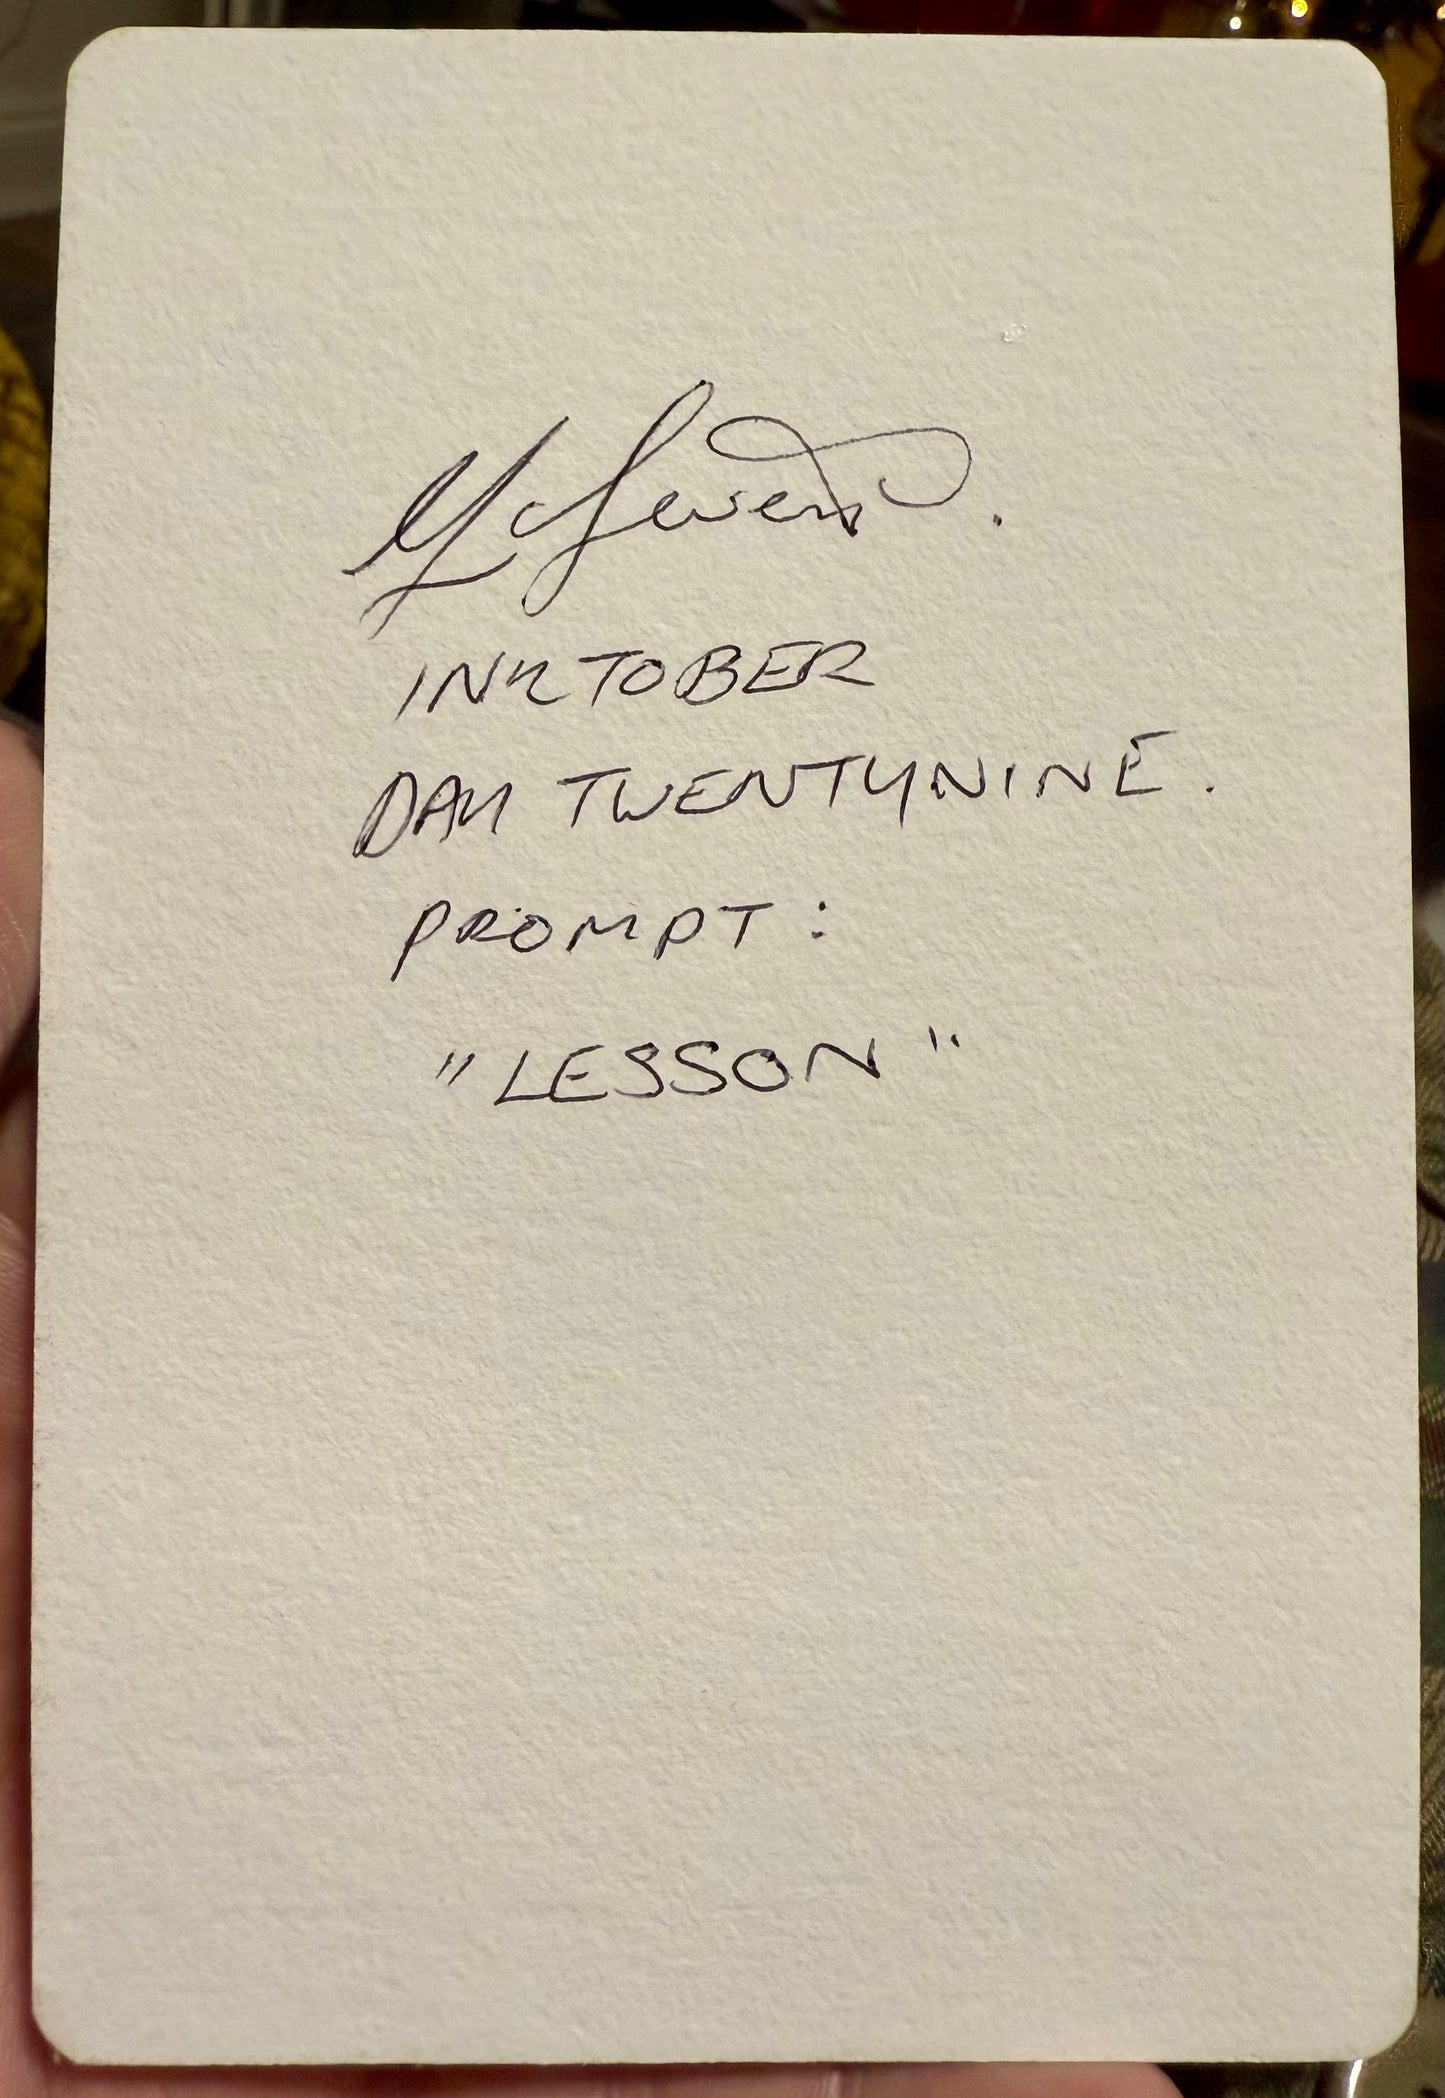 INKTOBER
DAY TWENTYNINE.
PROMPT:
"LESSON"